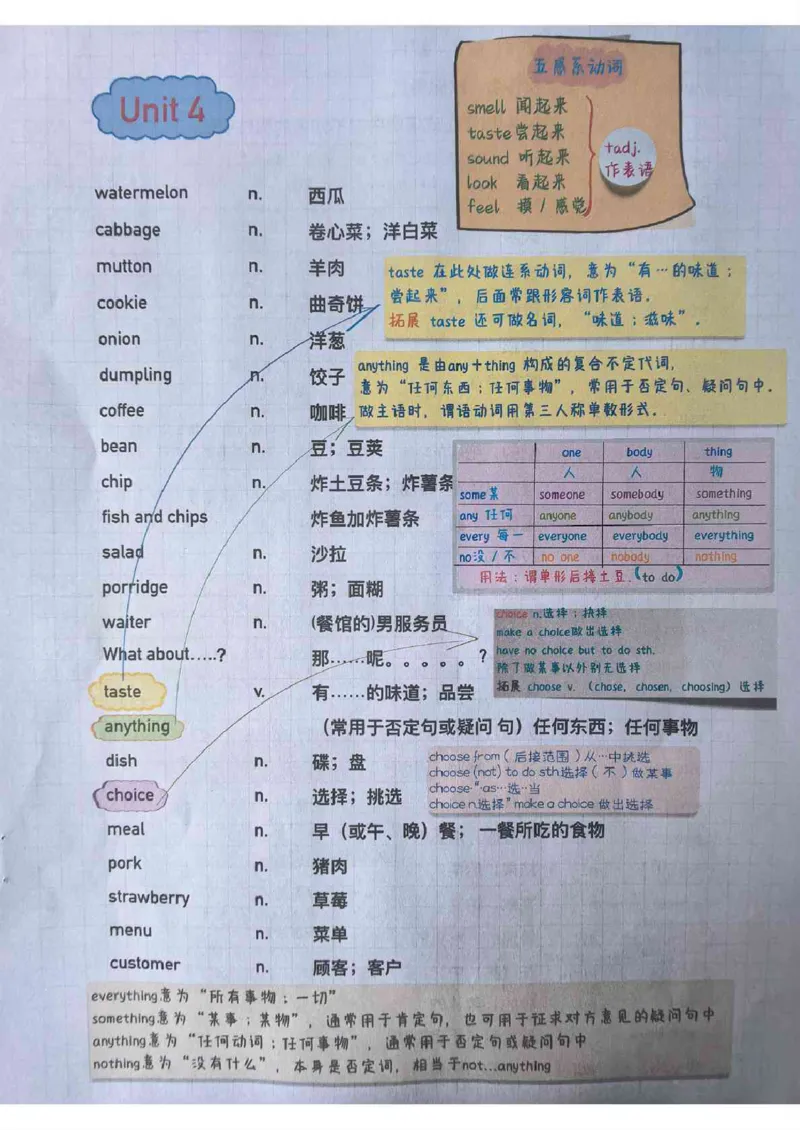 Unit 4
五感系动词
smell 闻起来
taste 尝起来
sound 听起来
look 看起来
feel 摸/感觉
+adj.
作表语
watermelon n. 西瓜
cabbage n. 卷心菜；洋白菜
mutton n. 羊肉
cookie n. 曲奇饼
onion n. 洋葱
dumpling n. 饺子
coffee n. 咖啡
bean n. 豆；豆荚
chip n. 炸土豆条；炸薯条
fish and chips 炸鱼加炸薯条
salad n. 沙拉
porridge n. 粥；面糊
waiter n. (餐馆的)男服务员
What about…..? 那……呢。。。。。？
taste v. 有……的味道；品尝
anything （常用于否定句或疑问 句）任何东西；任何事物
dish n. 碟；盘
choice n. 选择；挑选
meal n. 早（或午、晚）餐； 一餐所吃的食物
pork n. 猪肉
strawberry n. 草莓
menu n. 菜单
customer n. 顾客；客户
taste 在此处做连系动词，意为“有…的味道；
尝起来”，后面常跟形容词作表语.
拓展 taste 还可做名词，“味道；滋味”.
anything 是由any+thing 构成的复合不定代词，
意为“任何东西；任何事物”，常用于否定句、疑问句中.
做主语时，谓语动词用第三人称单数形式.
one body thing
人 人 物
some某 someone somebody something
any 任何 anyone anybody anything
every 每一 everyone everybody everything
no没/不 no one nobody nothing
用法：谓单形后接土豆.(to do)
choice n.选择；抉择
make a choice做出选择
have no choice but to do sth.
除了做某事以外别无选择
拓展 choose v. （chose, chosen, choosing）选择
choose from（后接范围）从…中挑选
choose (not) to do sth选择（不）做某事
choose…as…选…当
choice n.选择" make a choice 做出选择
everything意为“所有事物；一切”
something意为“某事；某物”，通常用于肯定句，也可用于征求对方意见的疑问句中
anything意为“任何动词；任何事物”，通常用于否定句或疑问句中
nothing意为“没有什么”，本身是否定词，相当于not...anything